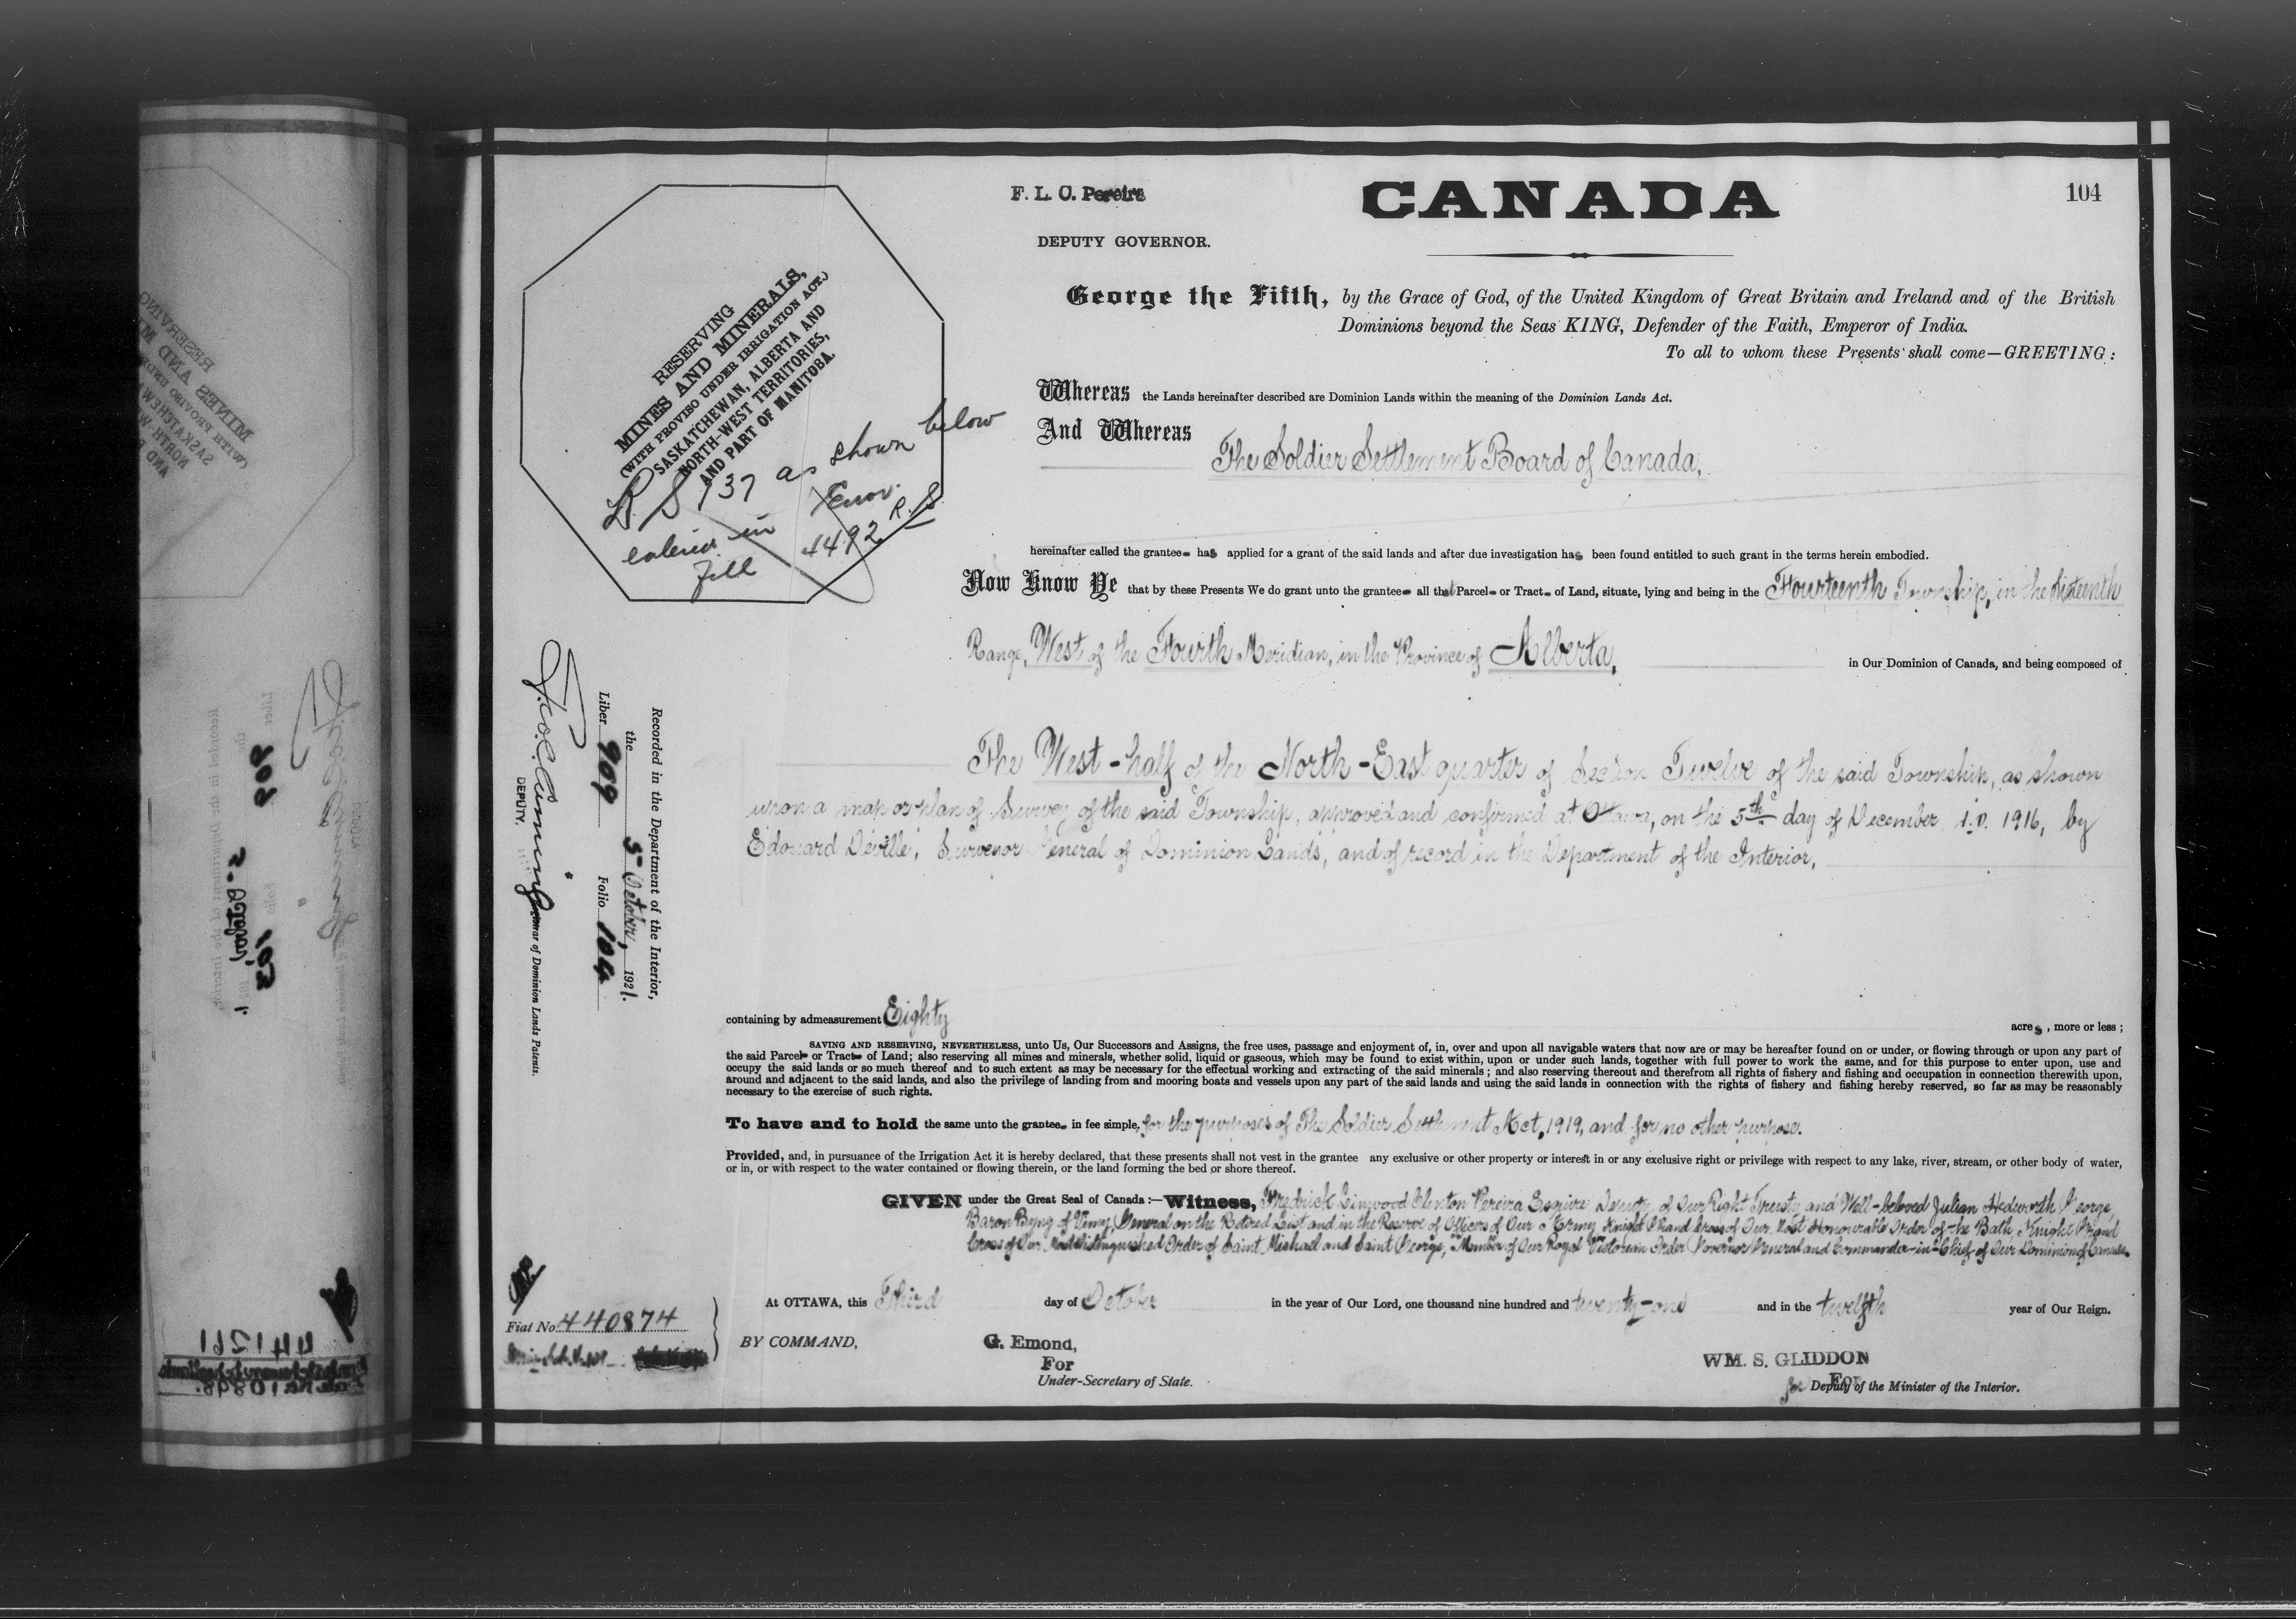 F. L. C. Pereira
CANADA
104
DEPUTY GOVERNOR.
George the Fifth, by the Grace of God, of the United Kingdom of Great Britain and Ireland and of the British
Dominions beyond the Seas KING, Defender of the Faith, Emperor of India.
To all to whom these Presents shall come—GREETING:
RESERVING
MINES AND MINERALS,
(WITH PROVISO UNDER IRRIGATION ACT.)
SASKATCHEWAN, ALBERTA AND
NORTH-WEST TERRITORIES,
AND PART OF MANITOBA.
137 as shown below
entered in Error.
4492 R. S
Whereas the Lands hereinafter described are Dominion Lands within the meaning of the Dominion Lands Act.
And Whereas
The Soldier Settlement Board of Canada,
hereinafter called the grantee has applied for a grant of the said lands and after due investigation has been found entitled to such grant in the terms herein embodied.
Now Know Ye that by these Presents We do grant unto the grantee all that Parcel or Tract of Land, situate, lying and being in the Fourteenth Township, in the Sixteenth
Range, West of the Fourth Meridian, in the Province of Alberta, in Our Dominion of Canada, and being composed of
The West-half of the North-East quarter of Section Twelve of the said Township, as shown
upon a map or plan of Survey of the said Township, approved and confirmed at Ottawa, on the 5th day of December A.D. 1916, by
Edouard Deville, Surveyor General of Dominion Lands, and of record in the Department of the Interior,
Recorded in the Department of the Interior,
the 5 October, 1921.
Liber 909 Folio 104
DEPUTY. Registrar of Dominion Lands Patents.
containing by admeasurement Eighty acres, more or less;
SAVING AND RESERVING, NEVERTHELESS, unto Us, Our Successors and Assigns, the free uses, passage and enjoyment of, in, over and upon all navigable waters that now are or may be hereafter found on or under, or flowing through or upon any part of
the said Parcel or Tract of Land; also reserving all mines and minerals, whether solid, liquid or gaseous, which may be found to exist within, upon or under such lands, together with full power to work the same, and for this purpose to enter upon, use and
occupy the said lands or so much thereof and to such extent as may be necessary for the effectual working and extracting of the said minerals; and also reserving thereout and therefrom all rights of fishery and fishing and occupation in connection therewith upon,
around and adjacent to the said lands, and also the privilege of landing from and mooring boats and vessels upon any part of the said lands and using the said lands in connection with the rights of fishery and fishing hereby reserved, so far as may be reasonably
necessary to the exercise of such rights.
To have and to hold the same unto the grantee in fee simple, for the purposes of The Soldier Settlement Act, 1919, and for no other purpose.
Provided, and, in pursuance of the Irrigation Act it is hereby declared, that these presents shall not vest in the grantee any exclusive or other property or interest in or any exclusive right or privilege with respect to any lake, river, stream, or other body of water,
or in, or with respect to the water contained or flowing therein, or the land forming the bed or shore thereof.
GIVEN under the Great Seal of Canada:—Witness, Fredrick Linwood Clinton Pereira Esquire Deputy of Our Right Trusty and Well-beloved Julian Hedworth George,
Baron Byng of Vimy, General on the Retired List and in the Reserve of Officers of Our Army Knight Grand Cross of Our Most Honourable Order of the Bath, Knight Grand
Cross of Our Most Distinguished Order of Saint Michael and Saint George, Member of Our Royal Victorian Order Governor General and Commander-in-Chief of Our Dominion of Canada.
At OTTAWA, this Third day of October in the year of Our Lord, one thousand nine hundred and twenty-one and in the twelfth year of Our Reign.
Fiat No. 440874
BY COMMAND,
G. Emond,
For
Under-Secretary of State.
WM. S. GLIDDON
For
for Deputy of the Minister of the Interior.